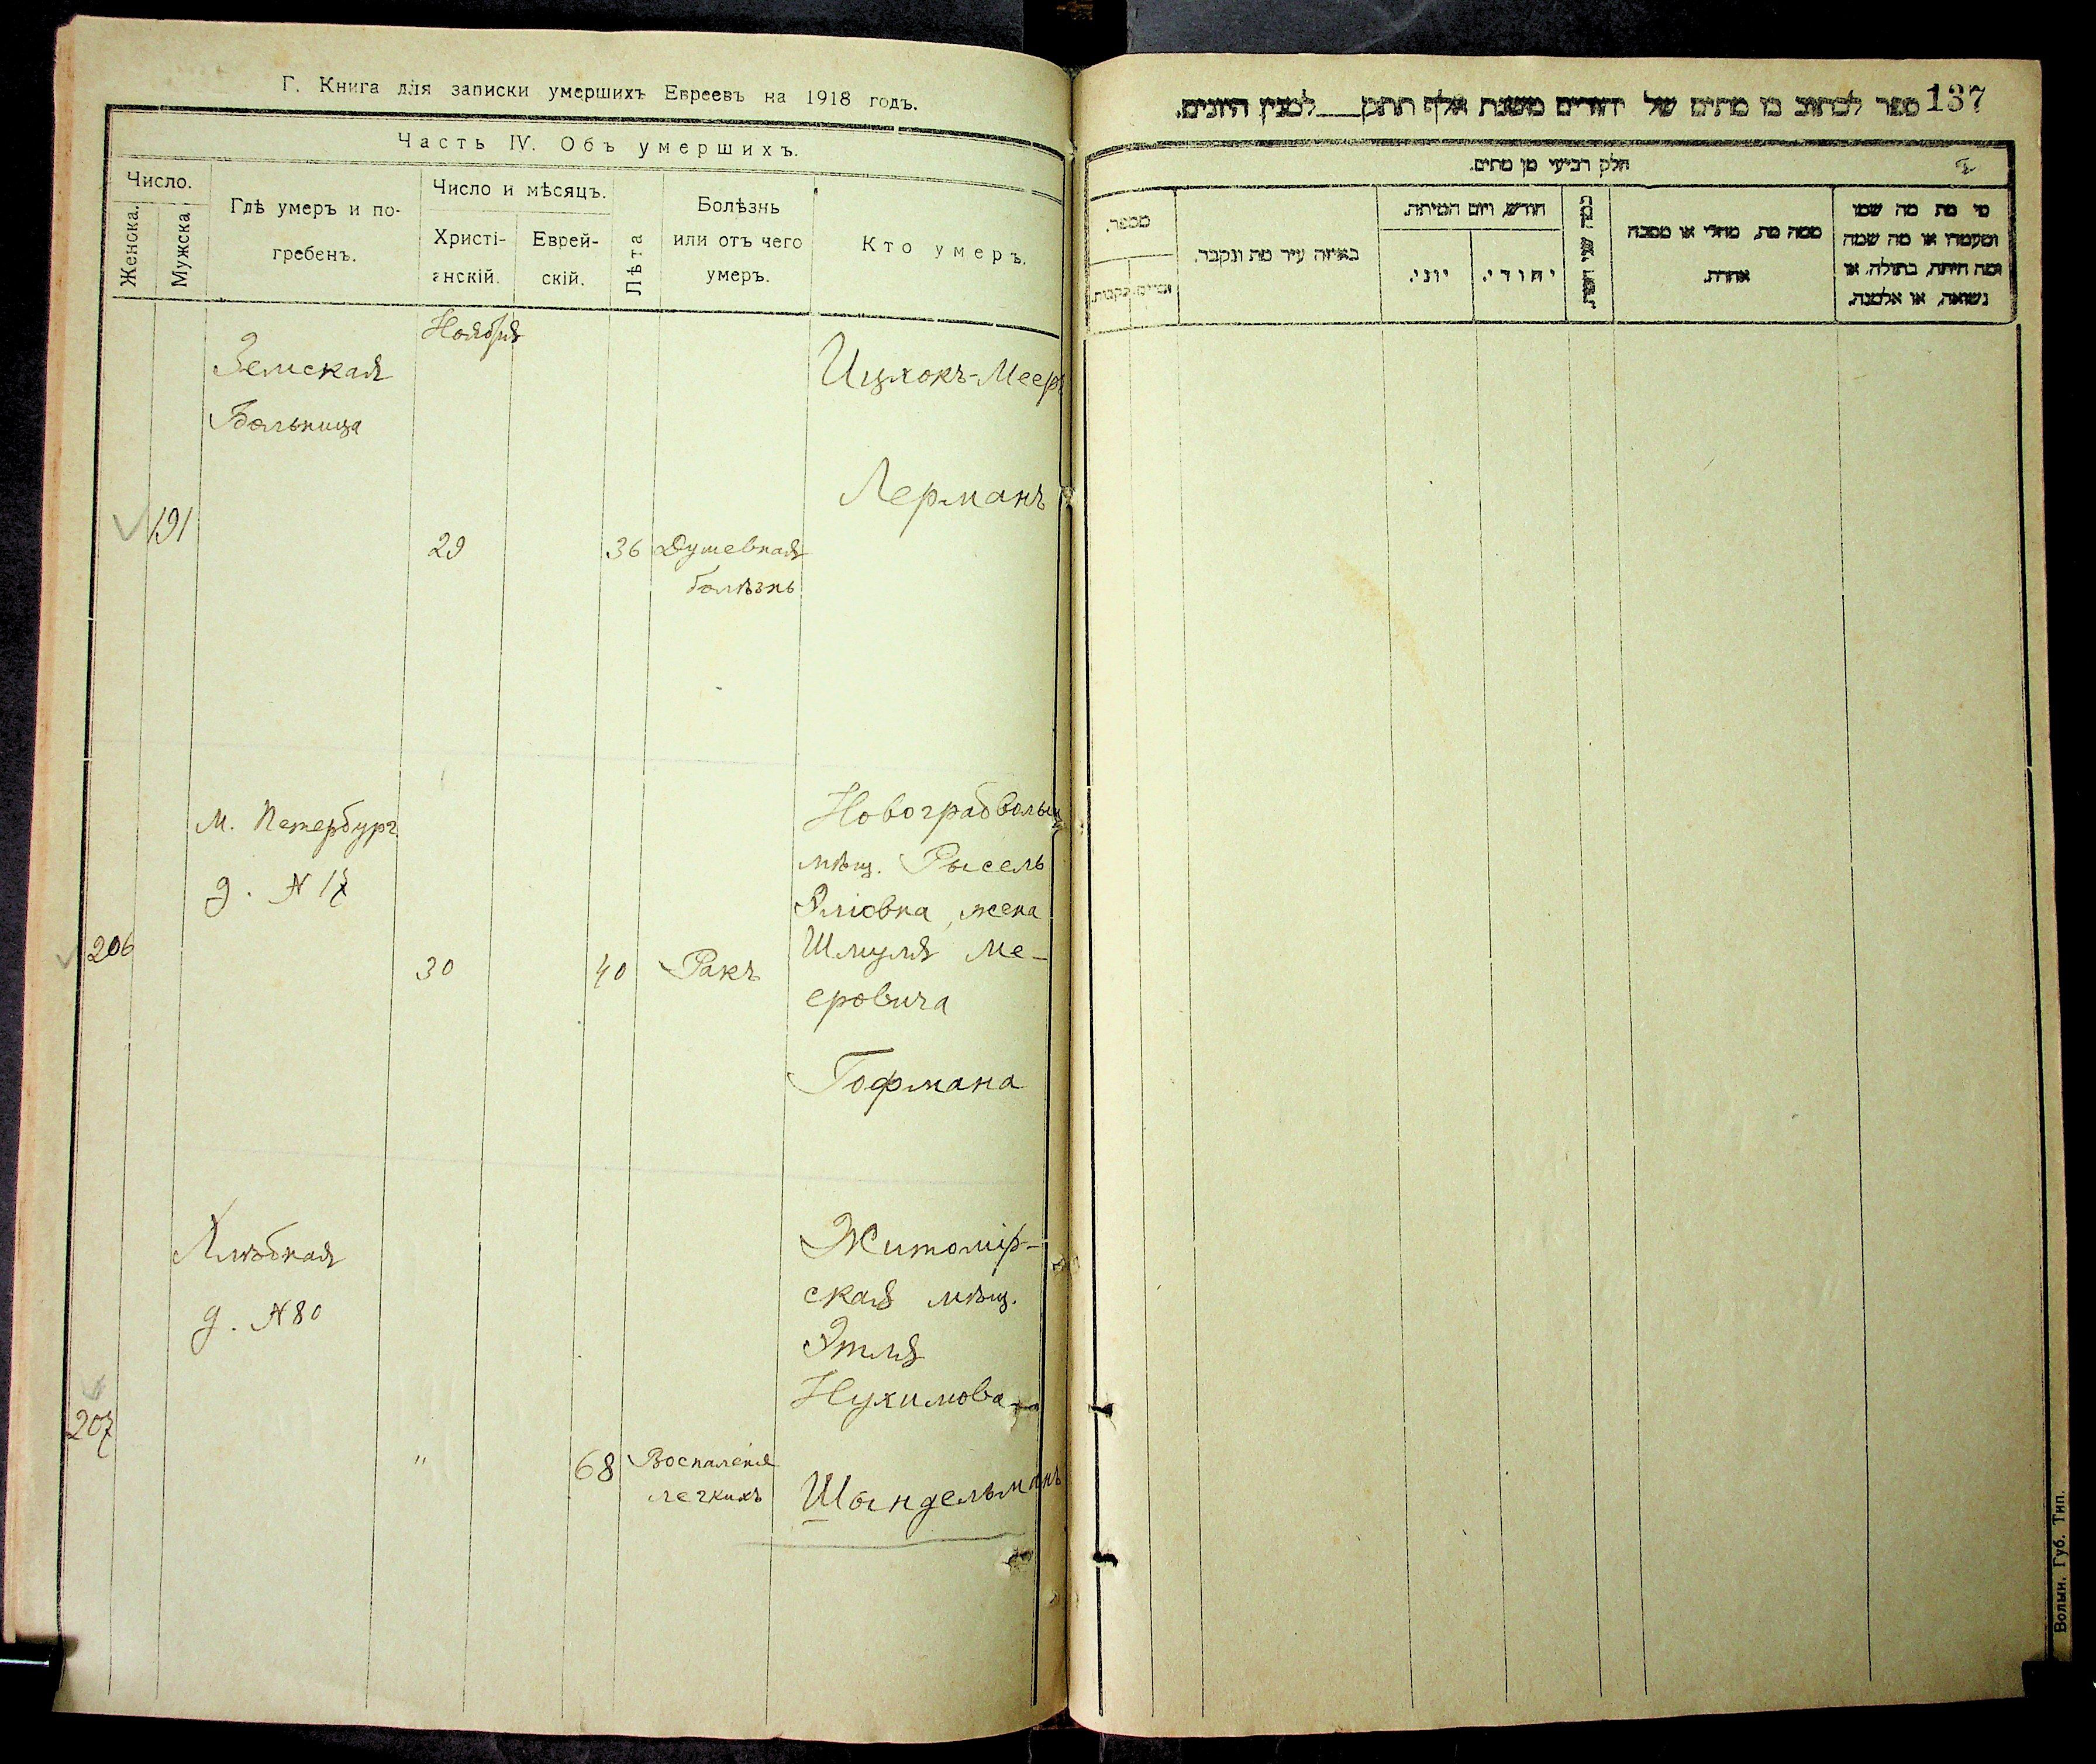 Г. Книга для записки умершихъ Евреевъ на 1918 годъ.
Часть IV. Объ умершихъ.
Число.
Женска.
Мужска
Гдѣ умеръ и по-
гребенъ.
Число и мѣсяцъ.
Христі-
анскій.
Еврей-
скій.
Лѣта
Болѣзнь
или отъ чего
умеръ.
Кто умеръ.
Ноября
Земская
Больница
191
29
36
Душевная
болѣзнь
Ицхокъ-Меер
Лерманъ
М. Петербург
д. № 17
206
30
40
Ракъ
Новоградволын
мѣщ. Рысель
Эліовна, жена
Шмуля Ме-
еровича
Гофмана
Хлѣбная
д. № 80
207
"
68
Воспаленіе
легкихъ
Житомір-
ская мѣщ.
Этля
Нухимова
Шендельманъ
ספר לכתוב בו מתים של יהודים משנת אלף תתק למנין היונים.
137
חלק רביעי מן מתים.
מי מת מה שמו
ומעמדו או מה שמה
ומה היתה, בתולה, או
נשואה, או אלמנה.
ממה מת, מחלי או מסבה
אחרת.
חודש, ויום המיתה.
יהודי.
יוני.
באיזה עיר מת ונקבר.
מספר.
נקבות.
Волын. Губ. Тип.